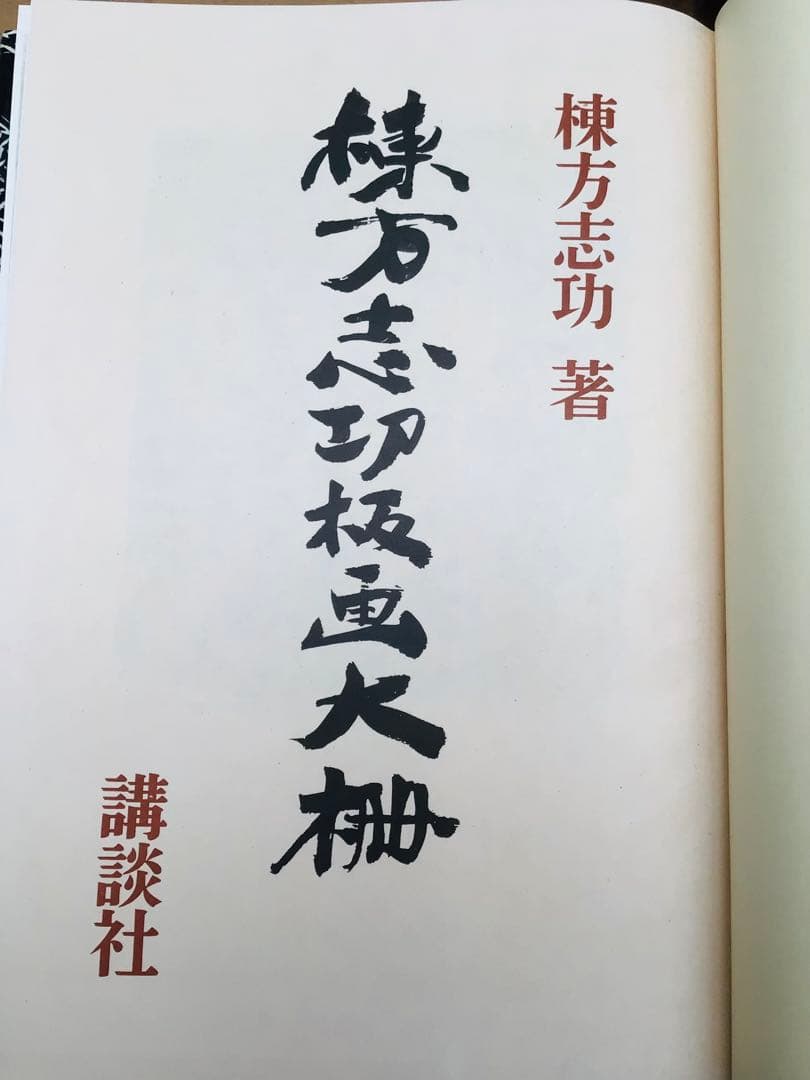 棟方志功 著
棟方志功板画大柵
講談社